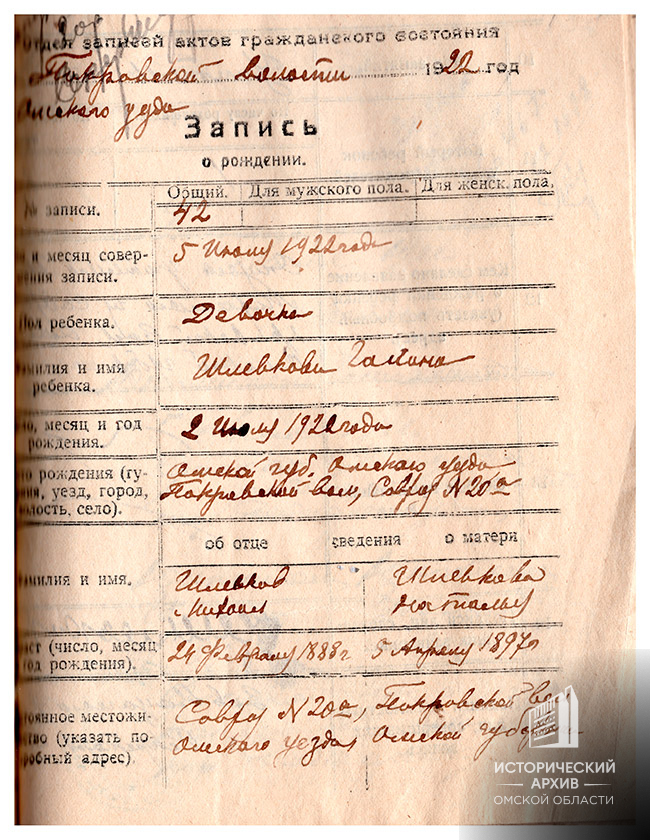 Отдел записей актов гражданского состояния
Покровской волости 1922 год
Омского уезда
Запись
о рождении.
Общий. Для мужского пола. Для женск. пола.
№ записи. 42
и месяц совер-
шения записи. 5 Июля 1922 года
Пол ребенка. Девочка
Фамилия и имя
ребенка. Шлевкова Галина
месяц и год
рождения. 2 Июля 1922 года
рождения (гу-
уезд, город,
волость, село). Омской губ. Омского уезда
Покровской вол, Совхоз N 20а
об отце сведения о матери
Фамилия и имя. Шлевков Шлевкова
Михаил Наталья
(число, месяц
год рождения). 24 Февраля 1888 г 5 Апреля 1897 г
местожи-
(указать по-
дробный адрес) Совхоз N 20а, Покровской
Омского уезда Омской губернии
ИСТОРИЧЕСКИЙ
АРХИВ
ОМСКОЙ ОБЛАСТИ